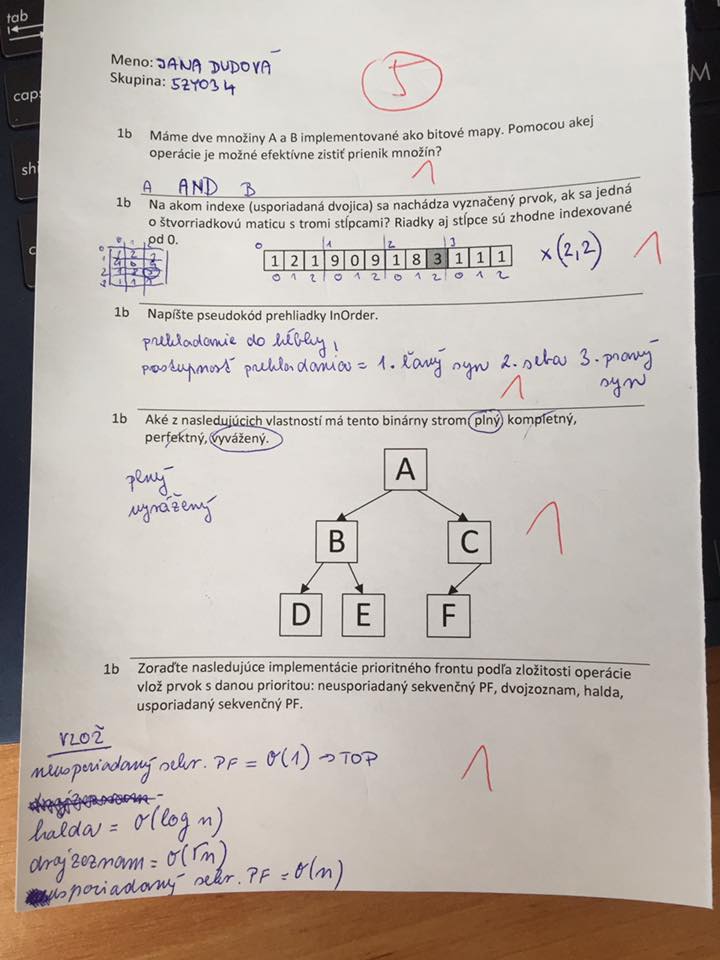 tab
caps
shi
M
Meno: JANA DUDOVÁ
Skupina: 5ZY034
5
1b Máme dve množiny A a B implementované ako bitové mapy. Pomocou akej
operácie je možné efektívne zistiť prienik množín?
1
A AND B
1b Na akom indexe (usporiadaná dvojica) sa nachádza vyznačený prvok, ak sa jedná
o štvorriadkovú maticu s tromi stĺpcami? Riadky aj stĺpce sú zhodne indexované
od 0.
0 1 2 3
1 2 1 9 0 9 1 8 3 1 1 1
0 1 2 0 1 2 0 1 2 0 1 2
x (2,2)
1
1b Napíšte pseudokód prehliadky InOrder.
prehladanie do hĺbky,
postupnosť prehladania = 1. ľavý syn 2. seba 3. pravý
syn
1
1b Aké z nasledujúcich vlastností má tento binárny strom plný, kompletný,
perfektný, vyvážený.
plný
vyvážený
A
B C
D E F
1
1b Zoraďte nasledujúce implementácie prioritného frontu podľa zložitosti operácie
vlož prvok s danou prioritou: neusporiadaný sekvenčný PF, dvojzoznam, halda,
usporiadaný sekvenčný PF.
VLOŽ
neusporiadaný sekv. PF = O(1) → TOP
halda = O(log n)
dvojzoznam = O(√n)
usporiadaný sekv. PF = O(n)
1